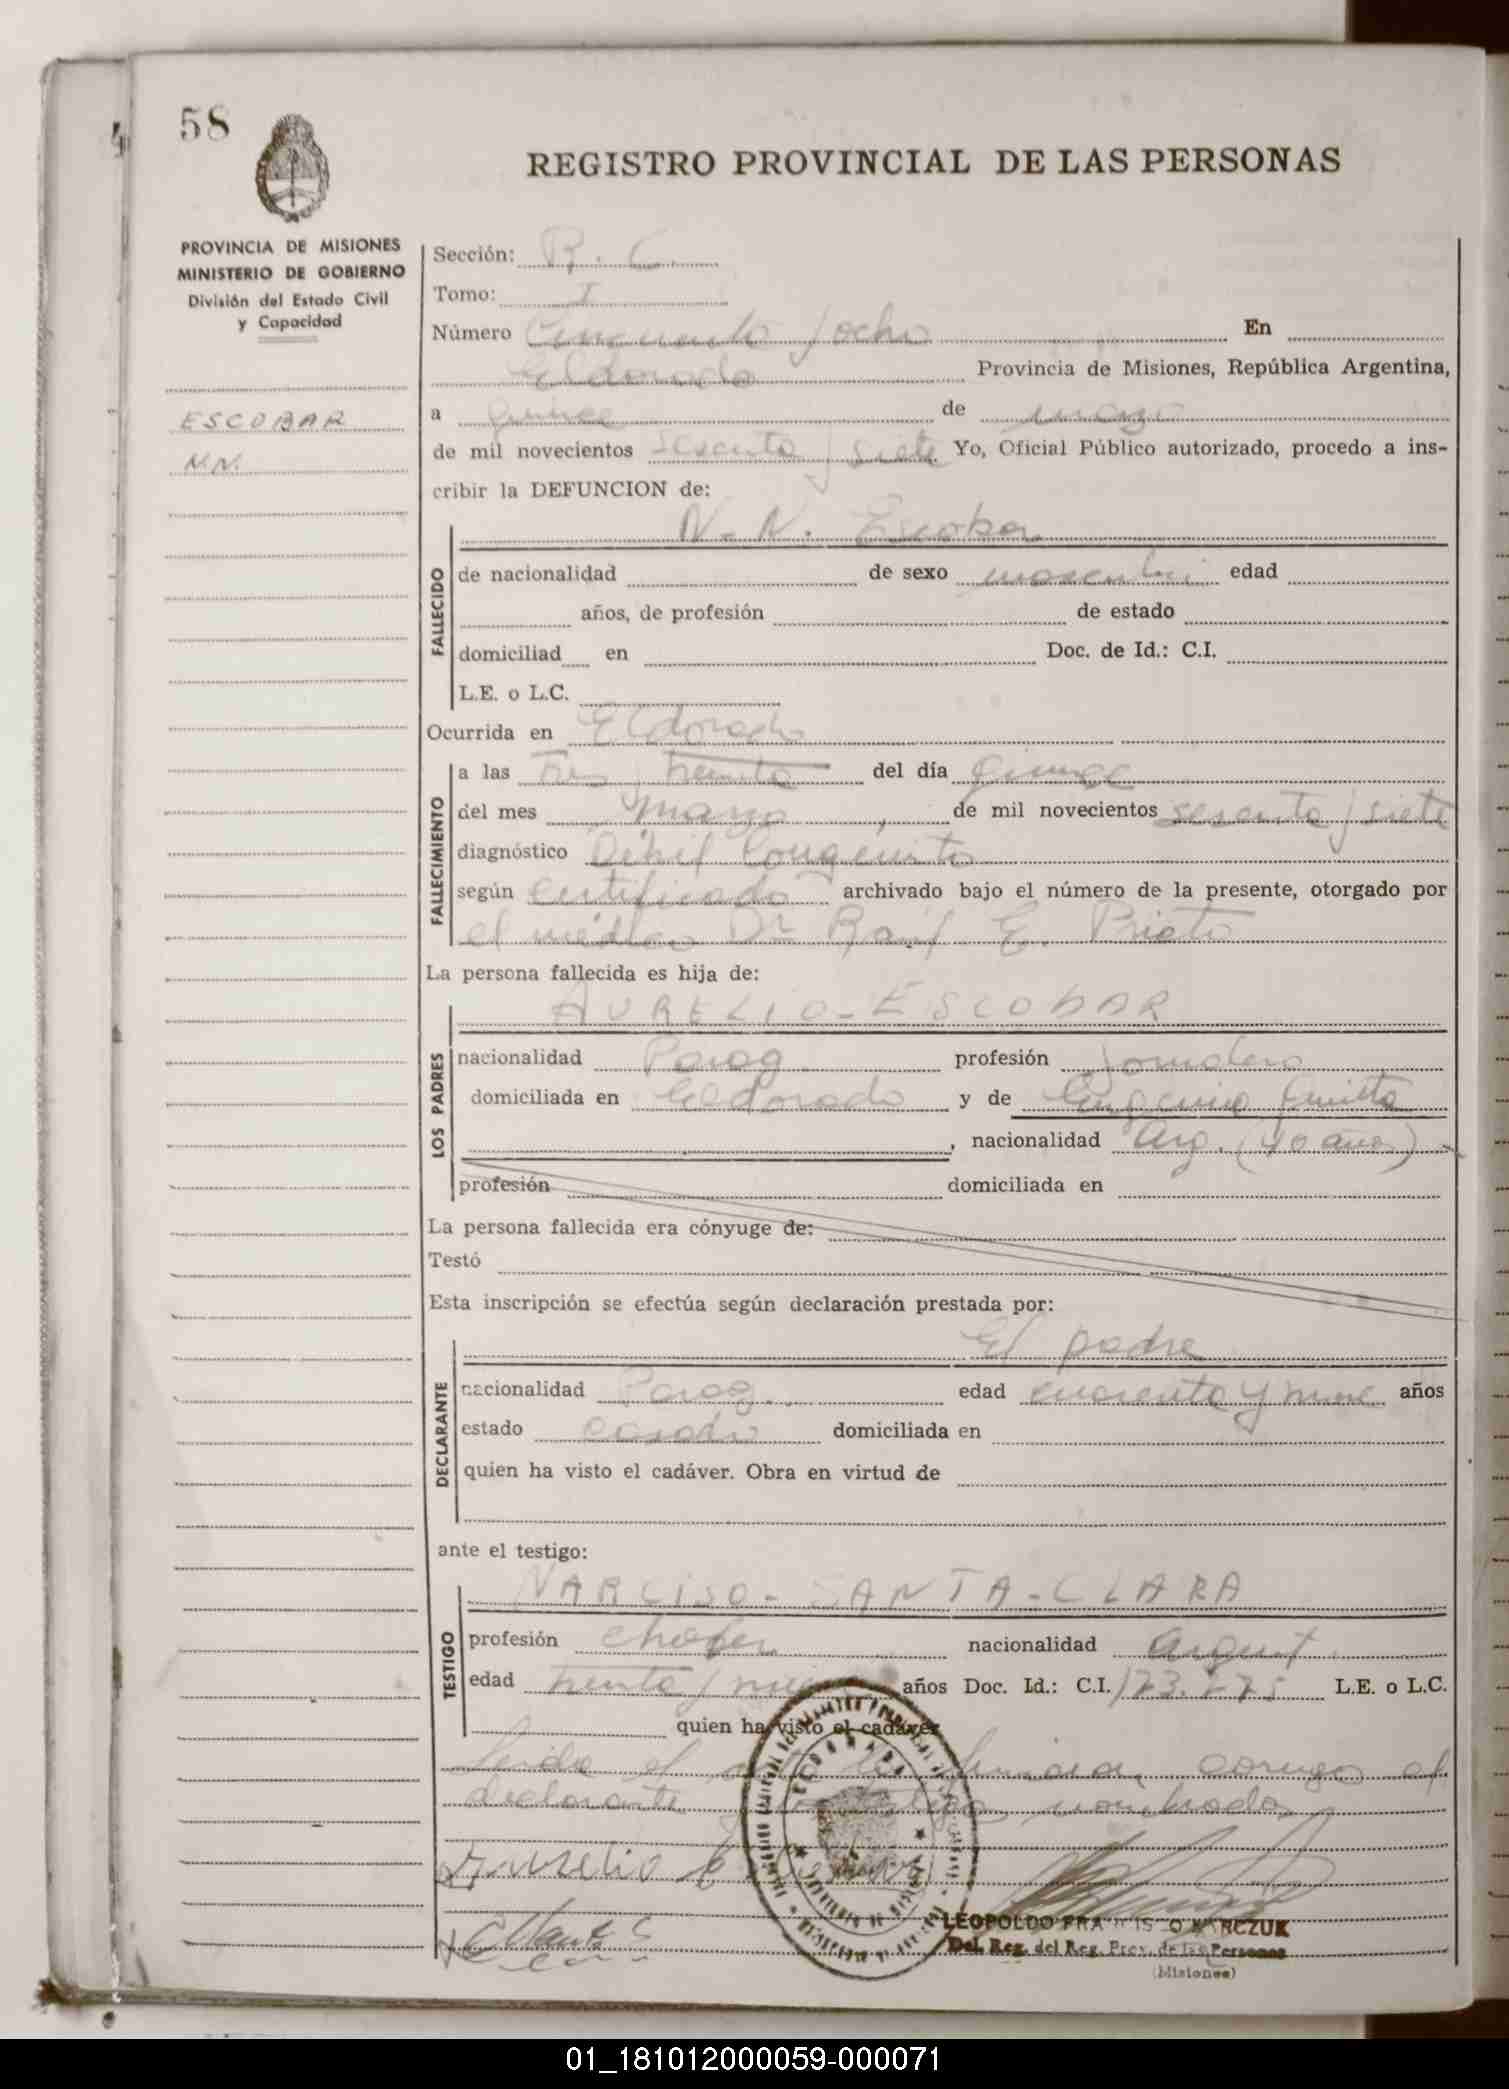 58
REGISTRO PROVINCIAL DE LAS PERSONAS
PROVINCIA DE MISIONES
MINISTERIO DE GOBIERNO
División del Estado Civil
y Capacidad
ESCOBAR
N.N.
Sección: R. C.
Tomo: I
Número Cincuenta y ocho En
Eldorado Provincia de Misiones, República Argentina,
a quince de marzo
de mil novecientos sesenta y siete Yo, Oficial Público autorizado, procedo a ins-
cribir la DEFUNCION de:
N. N. Escobar
FALLECIDO
de nacionalidad de sexo masculino edad
años, de profesión de estado
domiciliad en Doc. de Id.: C.I.
L.E. o L.C.
Ocurrida en Eldorado
FALLECIMIENTO
a las tres y treinta del día quince
del mes marzo, de mil novecientos sesenta y siete
diagnóstico Débil Congenito
según certificado archivado bajo el número de la presente, otorgado por
el médico Dr Raúl E. Prieto
La persona fallecida es hija de:
LOS PADRES
AURELIO-ESCOBAR
nacionalidad Parag. profesión Jornalero
domiciliada en Eldorado y de
, nacionalidad Arg. (40 años)
profesión domiciliada en
La persona fallecida era cónyuge de:
Testó
Esta inscripción se efectúa según declaración prestada por:
DECLARANTE
El padre
nacionalidad Parag. edad cuarenta y nueve años
estado casado domiciliada en
quien ha visto el cadáver. Obra en virtud de
ante el testigo:
TESTIGO
NARCISO-SANTA-CLARA
profesión chofer nacionalidad argent.
edad treinta y años Doc. Id.: C.I. L.E. o L.C.
quien ha visto el cadáver
Leida el conmigo el
declarante testigo nombrado
Aurelio
(Misiones)
Del. Reg. del Reg. Prov. de las Personas
01_181012000059-000071